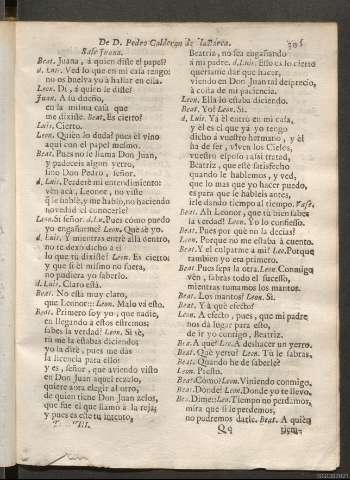 De D. Pedro Calderon de la Barca.
305
Sale Juana.
Beat. Juana, à quien diste el papel?
d. Luis. Ved lo que en mi casa tengo:
no os buelva yo à hallar en ella.
Leon. Dì, à quien le diste?
Juan. A su dueño,
en la misma casa que
me dixiste. Beat. Es cierto?
Luis. Cierto.
Leon. Quien lo duda? pues el vino
aqui con el papel mesmo.
Beat. Pues no se llama Don Juan,
y padeceis algun yerro,
sino Don Pedro, señor.
d. Luis. Perderè mi entendimiento:
vèn acà, Leonor, no viste
q̃ le hablè, y me hablò, no haciendo
novedad el conocerle?
Leon. Si señor. d. Lu. Pues còmo puedo
yo engañarme? Leon. Què sè yo.
d. Luis. Y mientras entrè allà dentro,
no te dexò dicho à ti
lo que tù dixiste? Leon. Es cierto;
y que si èl mismo no fuera,
no pudiera yo saberlo.
d. Luis. Claro està.
Beat. No està muy claro,
que Leonor::: Leon. Malo và esto.
Beat. Primero soy yo, que nadie,
en llegando à estos estremos:
sabes la verdad? Leon. Si sè,
tù me la estabas diciendo;
yo la dirè, pues me dàs
la licencia para ello:
y es, señor, que aviendo visto
en Don Juan aquel rezelo,
quiere aora elegir al otro,
de quien tiene Don Juan zelos,
que fue el que llamò à la reja;
y pues es este tu intento,
Tom. III.
Beatriz, no sea engañando
à mi padre. d. Luis. Esso es lo cierto
quererme dar que hacer,
viendo en Don Juan tal desprecio,
à costa de mi paciencia.
Leon. Ella lo estaba diciendo.
Beat. Yo? Leon. Si.
d. Luis. Ya èl entrò en mi casa,
y èl es el que yà yo tengo
dicho à vuestro hermano, y èl
ha de ser, viven los Cielos,
vuestro esposo: assi tratad,
Beatriz, que estè satisfecho
quando le hablemos, y ved,
que lo mas que yo hacer puedo,
es para que le hableis antes,
irle dando tiempo al tiempo. Vase.
Beat. Ah Leonor, que tù bien sabes
la verdad! Leon. Yo lo confiesso.
Beat. Pues por què no la decias?
Leon. Porque no me estaba à cuento.
Beat. Y el culparme à mi? Leo. Porque
tambien yo era primero.
Beat. Pues sepa la otra. Leon. Conmigo
vèn, sabràs todo el sucesso,
mientras tomamos los mantos.
Beat. Los mantos? Leon. Si.
Beat. Y à què efecto?
Leon. A efecto, pues, que mi padre
nos dà lugar para esto,
de ir yo contigo, Beatriz.
Bea. A què? Leo. A deshacer un yerro.
Beat. Què yerro? Leon. Tù le sabràs.
Beat. Quando he de saberle?
Leon. Presto.
Beat. Còmo? Leon. Viniendo conmigo.
Beat. Donde? Leon. Donde yo te llevo.
Bea. Dime::: Leon. Tiempo no perdamos,
mira que si le perdemos,
no podremos darle. Beat. A quièn
Qq